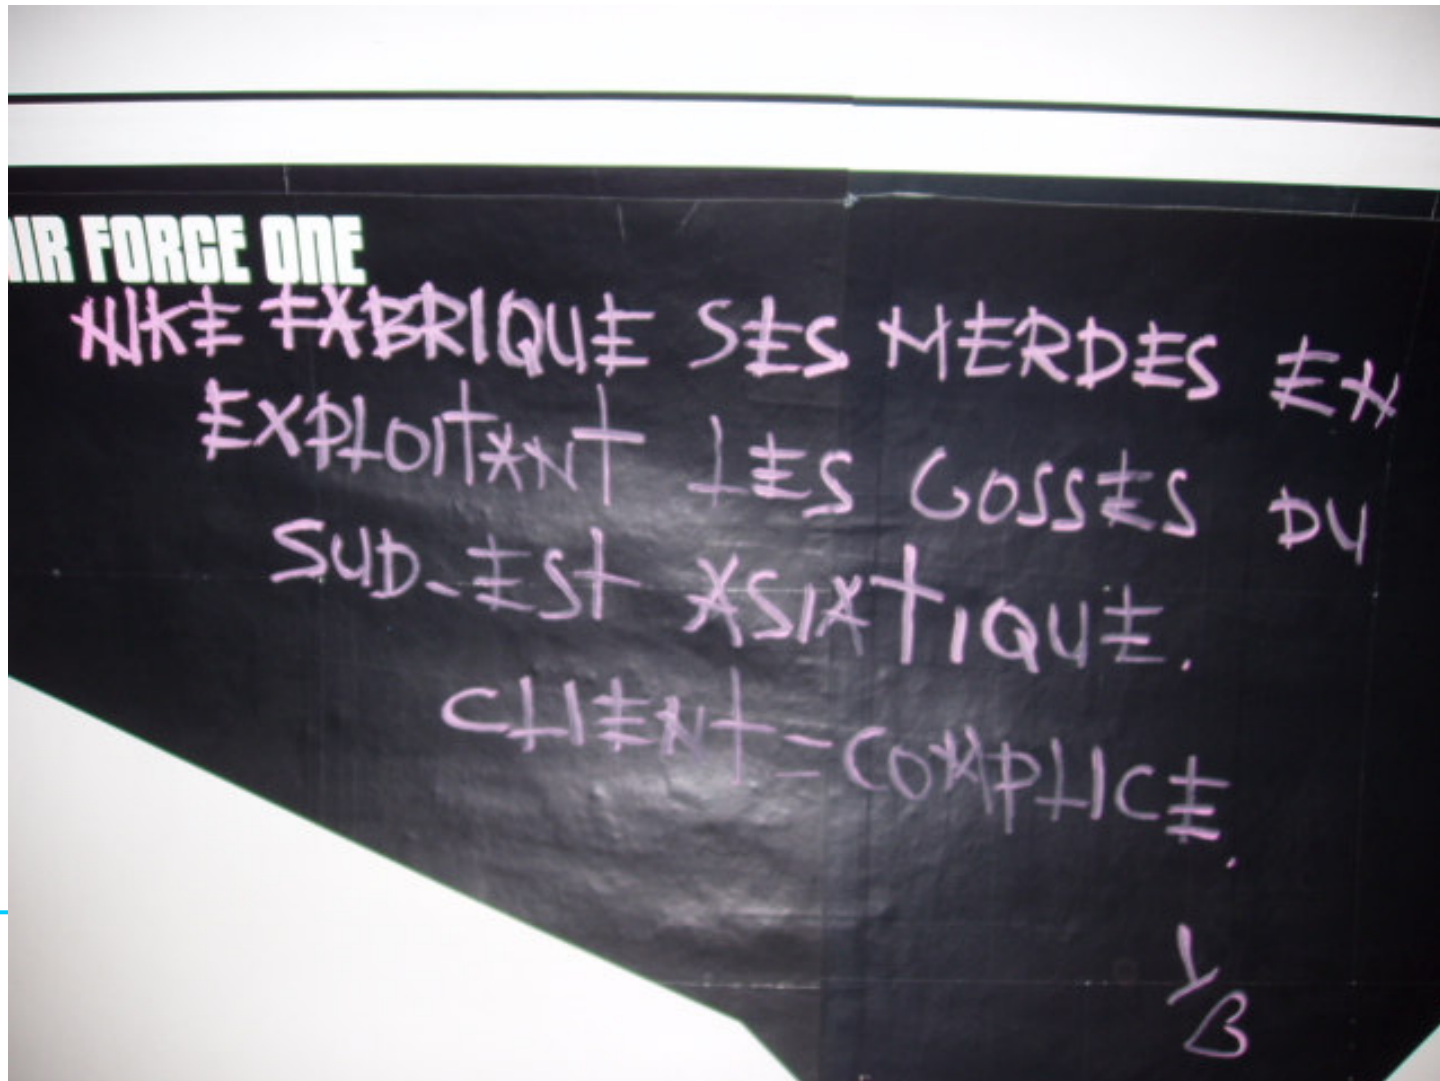 AIR FORCE ONE
NIKE FABRIQUE SES MERDES EN
EXPLOITANT LES GOSSES DU
SUD-EST ASIATIQUE.
CLIENT=COMPLICE.
Y
B